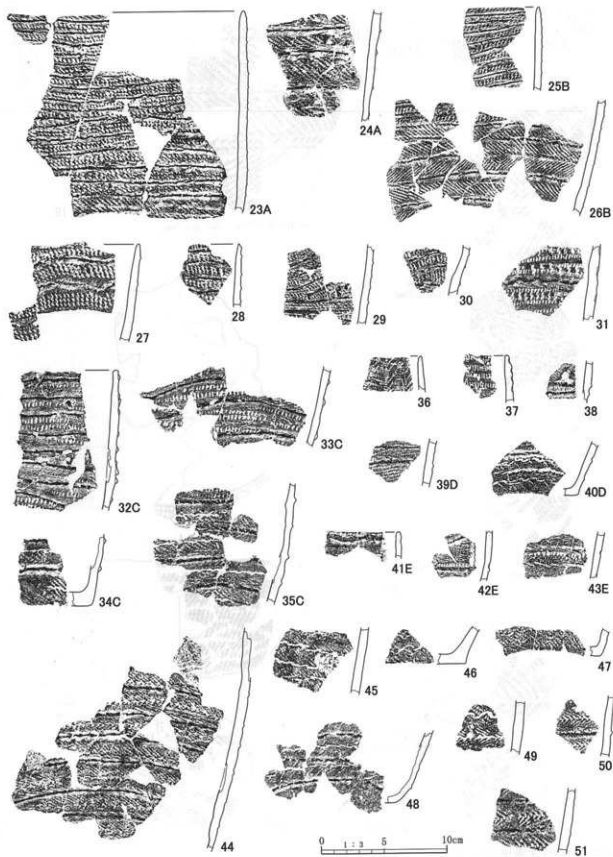 23A
24A
25B
26B
27
28
29
30
31
32C
33C
36
37
38
39D
40D
34C
35C
41E
42E
43E
44
45
46
47
48
49
50
51
0 1:3 5 10cm